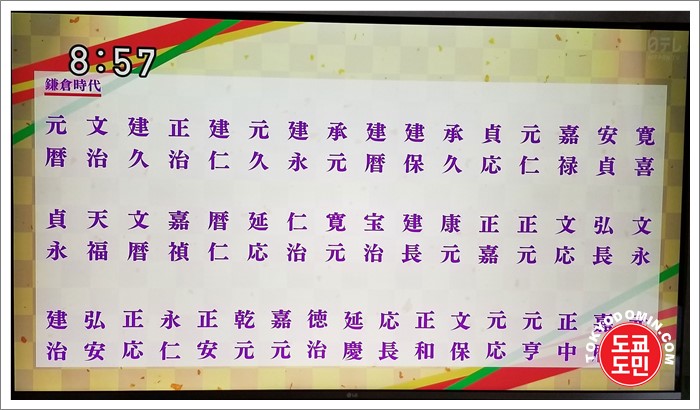 8:57
日テレ
鎌倉時代
元暦 文治 建久 正治 建仁 元久 建永 承元 建暦 建保 承久 貞応 元仁 嘉禄 安貞 寛喜
貞永 天福 文暦 嘉禎 暦仁 延応 仁治 寛元 宝治 建長 康元 正嘉 正元 文応 弘長 文永
建治 弘安 正応 永仁 正安 乾元 嘉元 徳治 延慶 応長 正和 文保 元応 元亨 正中
TOKYODOMIN.COM
도쿄
도민